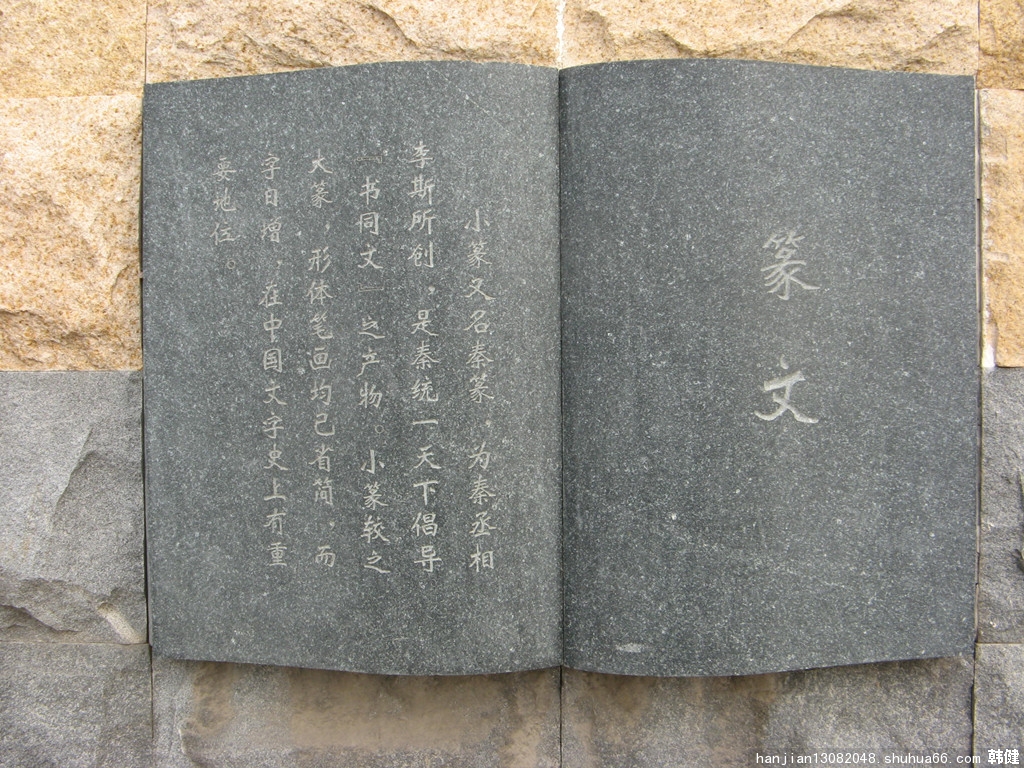 篆文
小篆又名秦篆，为秦丞相
李斯所创，是秦统一天下倡导
“书同文”之产物。小篆较之
大篆，形体笔画均已省简，而
字日增，在中国文字史上有重
要地位。
hanjian13082048.shuhua66.com 韩健